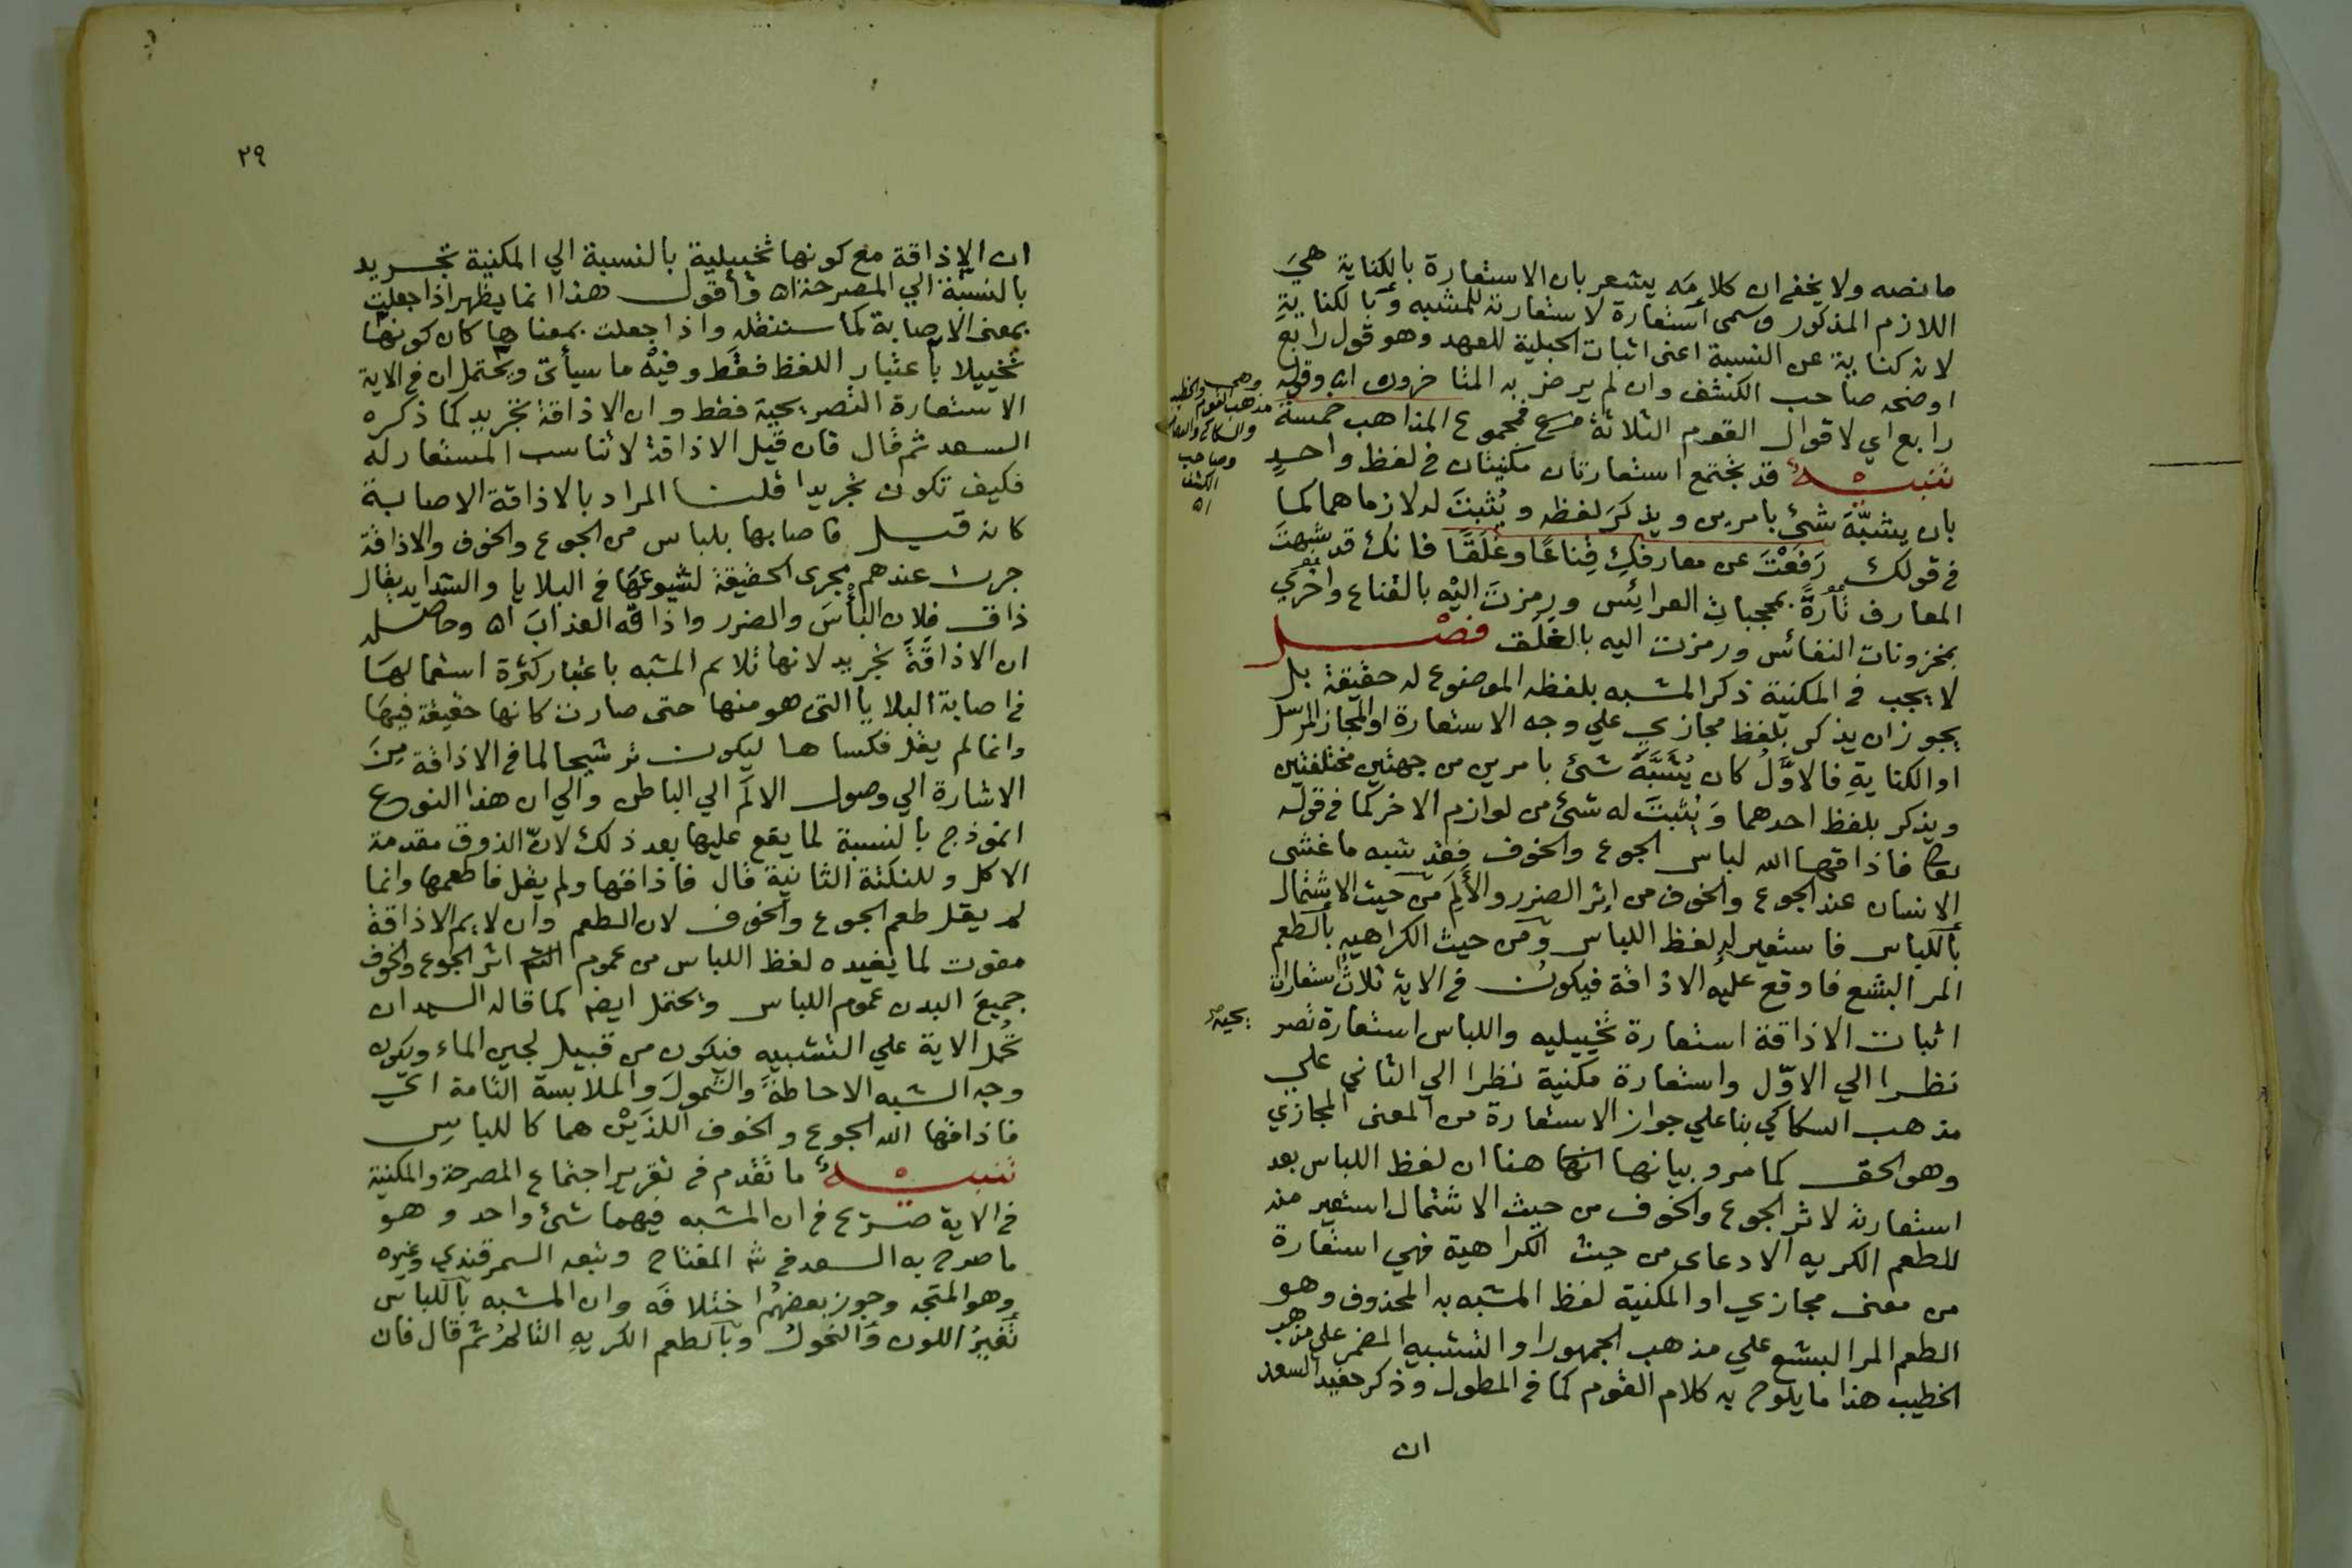 ما نصه ولا يخفى ان كلامَه يشعر بان الاستعارة بالكناية هيَ
اللازم المذكور وسمى استعارة لاستعارته للمشبه وبالكنايةِ
لانه كناية عن النسبة اعنى اثبات الحبلية للعهد وهو قول رابع
اوضحه صاحب الكشف وان لم يرض به المتاخرون اه وقوله
رابع اي لاقوال القوم الثلاثة فمجموع المذاهب خمسة
تنبيـــه قد تجتمع استعارتان مكنيتان في لفظ واحدٍ
بان يشبَّهَ شئ بامرين ويذكرَ لفظه ويُثبتَ له لازماهما كما
في قولك رَفَعْتَ عن معارفكِ قِناعًا وغَلَقًا فانك قد شبهتَ
المعارف تارةً بمحجباتِ العرائس ورمزتَ اليْه بالقناع واخري
بمخزونات النفائس ورمزت اليه بالغلَق فصْــل
لا يجب في المكنية ذكر المشبه بلفظه الموضوع له حقيقة بل
يجوز ان يذكر بلفظ مجازي علي وجه الاستعارة او المجاز المرسل
او الكنايةِ فالاوَّلُ كان يُشَبَّهَ شئ بامرين من جهتين مختلفتين
ويذكر بلفظ احدهما وَيُثبتَ له شئ من لوازم الاخر كما في قوله
تعا فاذاقها الله لباس الجوع والخوف فقد شبه ما غشى
الانسان عند الجوع والخوف من اثر الضرر والأَلَمِ من حيث الاشتمال
باللباس فاستعير له لفظ اللباس ومن حيث الكراهيه بالطعم
المر البشع فاوقع عليه الاذاقة فيكون في الاية ثلاثُ استعارات
اثبات الاذاقة استعارة تخييليه واللباس استعارة تصر يحيه
نظرا الي الاوّل واستعارة مكنية نظرا الي الثاني علي
مذهب السكاكي بنا علي جواز الاستعارة من المعنى المجازي
وهو الحق كما مر وبيانها هنا ان لفظ اللباس بعد
استعارته لاثر الجوع والخوف من حيث الاشتمال استعير منه
للطعم الكريه الادعاى من حيث الكراهية فهي استعارة
من معنى مجازي او المكنية لفظ المشبه به المحذوف وهو
الطعم المر البشع علي مذهب الجمهور او التشبيه المضمر علي مذهب
الخطيب هذا ما يلوح به كلام القوم كما في المطول وذكر حفيد السعد
ان
وهي
مذهب القوم والخطيب
والسكاكي
وصاحب
الكشف
اه
٢٩
ان الاذاقة مع كونها تخييلية بالنسبة الي المكنية تجريد
بالنسبة الي المصرحة اه وأقول هذا انما يظهر اذا جعلت
بمعنى الاصابة كما ستنقله واذا جعلت بمعناها كان كونها
تخييلا باعتبار اللفظ فقط وفيْه ما سيأتى ويحتمل ان في الاية
الاستعارة التصريحية فقط وان الاذاقة تجريد كما ذكره
السعد ثم قال فان قيل الاذاقة لا تناسب المستعار له
فكيف تكون تجريدا قلت المراد بالاذاقة الاصابة
كانه قيل فاصابها بلباس من الجوع والخوف والاذاقة
جرت عندهم مجرى الحقيقة لشيوعها في البلايا والشدايد يقال
ذاق فلان البأْسَ والضرر واذاقه العذابَ اه وحاصله
ان الاذاقَةَ تجريد لانها تلائم المشبه باعتبار كثرة استعمالها
في اصابة البلايا التى هو منها حتى صارت كانها حقيقة فيهَا
وانما لم يقل فكساها ليكون ترشيحا لما في الاذاقة مِنَ
الاشارة الي وصول الالَم الي الباطن والي ان هذا النوع
انموذج بالنسبة لما يقع عليها بعد ذلك لانّ الذوق مقدمة
الاكل وللنكتة الثانية قال فاذاقها ولم يقل فاطعمها وانما
لم يقل طعم الجوع والخوف لان الطعم وان لايم الاذاقة
مفوت لما يفيده لفظ اللباس من عموم اثر الجوع والخوف
جميعَ البدن عموم اللباس ويحتمل ايضا كما قاله السيد ان
تُحمل الاية علي التشبيه فيكون من قبيل لجين الماء ويكون
وجه الشبه الاحاطةَ والشمولَ والملابسة التامة اي
فاذاقها الله الجوع والخوف اللذَيْن هما كاللباس
تنبيـــه ما تقدم في تقرير اجتماع المصرحة والمكنية
في الاية صريح في ان المشبه فيهما شئ واحد وهو
ما صرح به السعد في شر المفتاح وتبعه السمرقندي وغيره
وهو المتجه وجوز بعضهُم اختلافَه وان المشبه باللباس
تَغيرُ اللون والنحولُ وبالطعم الكريهِ التالمُ ثم قال فان